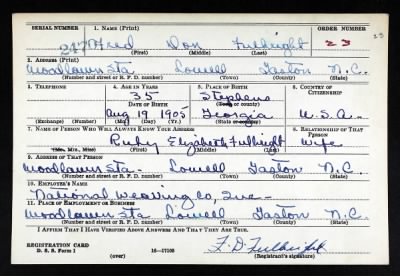 SERIAL NUMBER 1. NAME (Print) ORDER NUMBER
Fred Don Fulbright 23 23
(First) (Middle) (Last)
2. ADDRESS (Print)
Woodlawn Sta Lowell Gaston N.C.
(Number and street or R. F. D. number) (Town) (County) (State)
3. TELEPHONE 4. AGE IN YEARS 5. PLACE OF BIRTH 6. COUNTRY OF CITIZENSHIP
35 Stephens
DATE OF BIRTH (Town or county)
Aug 19 1905 Georgia U.S.A.
(Exchange) (No.) (Mo.) (Day) (Yr.) (State or country)
7. NAME OF PERSON WHO WILL ALWAYS KNOW YOUR ADDRESS 8. RELATIONSHIP OF THAT PERSON
Ruby Elizabeth Fulbright Wife
(Mr., Mrs., Miss) (First) (Middle) (Last)
9. ADDRESS OF THAT PERSON
Woodlawn Sta - Lowell Gaston N.C.
(Number and street or R. F. D. number) (Town) (County) (State)
10. EMPLOYER'S NAME
National Weaving Co, Inc -
11. PLACE OF EMPLOYMENT OR BUSINESS
Woodlawn Sta Lowell Gaston N.C.
(Number and street or R. F. D. number) (Town) (County) (State)
I AFFIRM THAT I HAVE VERIFIED ABOVE ANSWERS AND THAT THEY ARE TRUE.
REGISTRATION CARD
D. S. S. Form 1 16-17105 F. D. Fulbright
(over) (Registrant's signature)